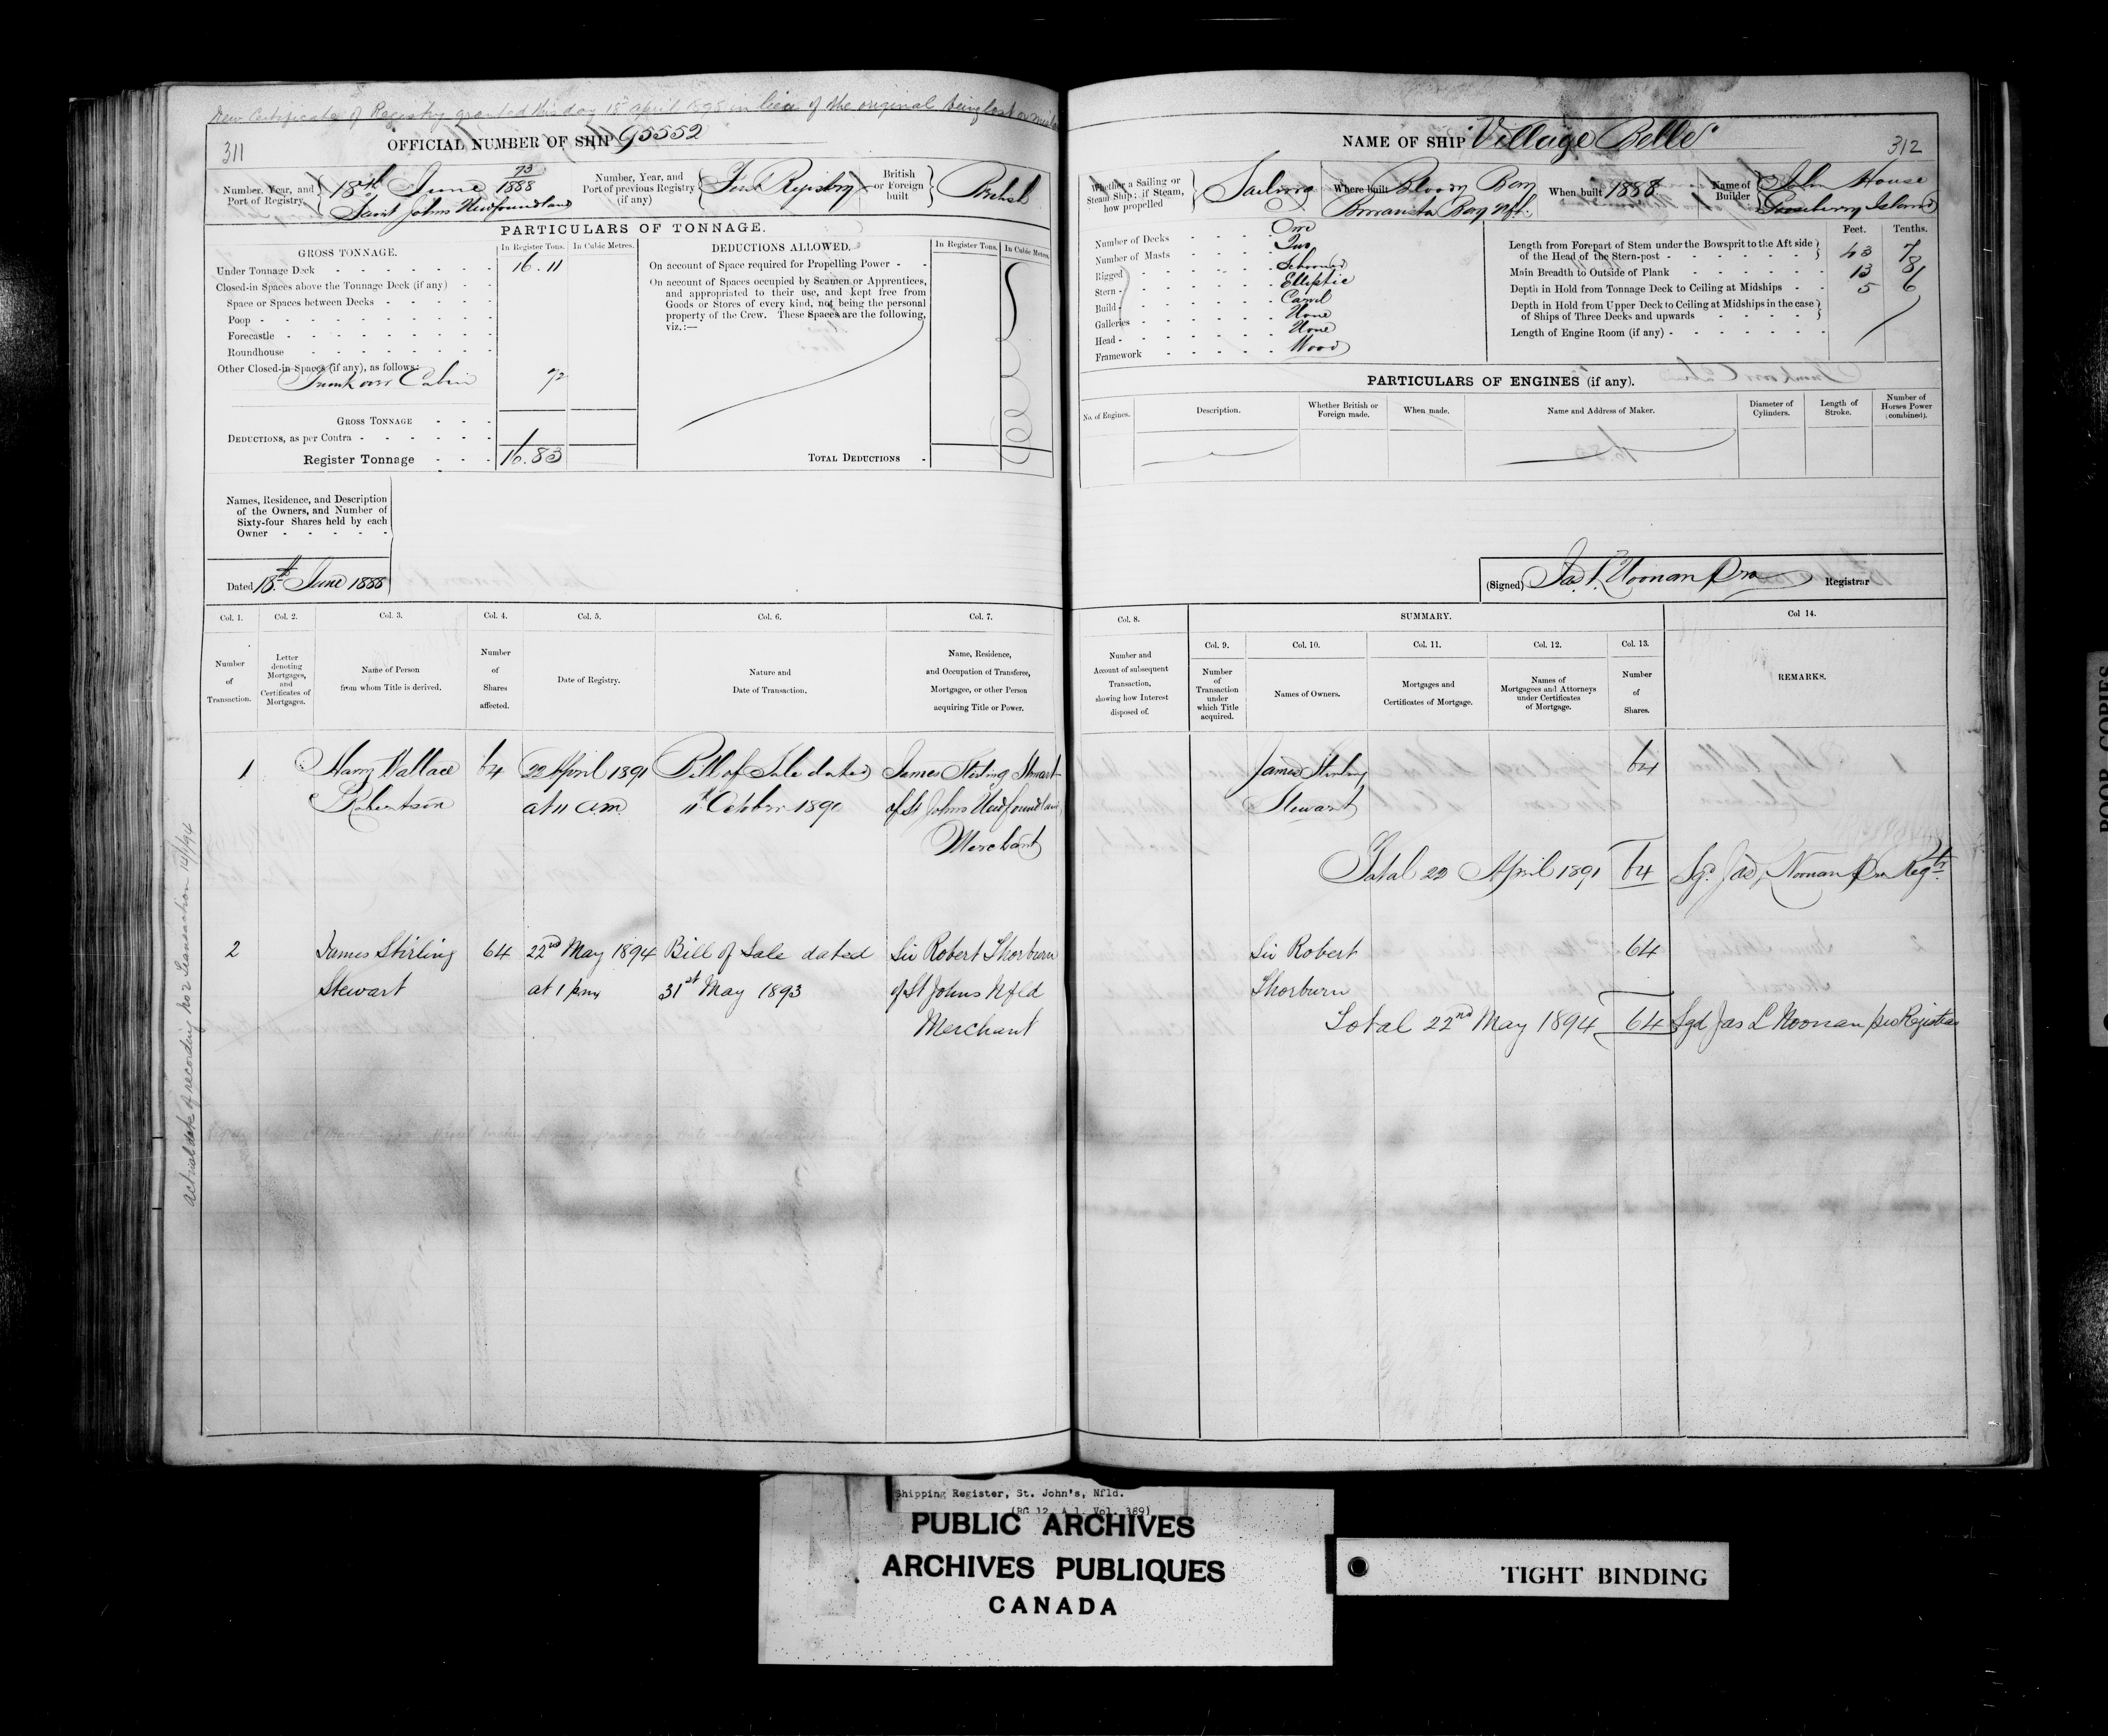 New Certificate of Registry granted this day 18th April 1895 in lieu of the original being lost or
311
OFFICIAL NUMBER OF SHIP 95552
Number, Year, and Port of Registry. 18th June 73/1888 Saint Johns Newfoundland
Number, Year, and Port of previous Registry (if any) First Registry
British or Foreign built British
PARTICULARS OF TONNAGE.
GROSS TONNAGE. In Register Tons. In Cubic Metres.
Under Tonnage Deck 16.11
Closed-in Spaces above the Tonnage Deck (if any)
Space or Spaces between Decks
Poop
Forecastle
Roundhouse
Other Closed-in Spaces (if any), as follows:
Trunk over Cabin 72
GROSS TONNAGE
DEDUCTIONS, as per Contra
Register Tonnage 16.83
DEDUCTIONS ALLOWED. In Register Tons. In Cubic Metres.
On account of Space required for Propelling Power
On account of Spaces occupied by Seamen or Apprentices,
and appropriated to their use, and kept free from
Goods or Stores of every kind, not being the personal
property of the Crew. These Spaces are the following,
viz.:—
TOTAL DEDUCTIONS
Names, Residence, and Description
of the Owners, and Number of
Sixty-four Shares held by each
Owner
Dated 18th June 1888
Col. 1. Col. 2. Col. 3. Col. 4. Col. 5. Col. 6. Col. 7.
Number of Transaction.
Letter denoting Mortgages, and Certificates of Mortgages.
Name of Person from whom Title is derived.
Number of Shares affected.
Date of Registry.
Nature and Date of Transaction.
Name, Residence, and Occupation of Transferee, Mortgagee, or other Person acquiring Title or Power.
1 Harry Wallace 64 22 April 1891 Bill of Sale dated James Stirling Stewart
Robertson at 11 a.m. 11th October 1890 of St Johns Newfoundland
Merchant
2 James Stirling 64 22nd May 1894 Bill of Sale dated Sir Robert Thorburn
Stewart at 1 pm 31st May 1893 of St Johns Nfld
Merchant
actual date of recording no 2 transaction
NAME OF SHIP Village Belle
312
Whether a Sailing or Steam Ship; if Steam, how propelled Sailing
Where built Bloody Bay Bonavista Bay Nfl.
When built 1888
Name of Builder John House Gooseberry Island
Number of Decks One
Number of Masts Two
Rigged Schooner
Stern Elliptic
Build Carvel
Galleries None
Head None
Framework Wood
Feet. Tenths.
Length from Forepart of Stem under the Bowsprit to the Aft side
of the Head of the Stern-post 43 7
Main Breadth to Outside of Plank 13 8
Depth in Hold from Tonnage Deck to Ceiling at Midships 5 6
Depth in Hold from Upper Deck to Ceiling at Midships in the case
of Ships of Three Decks and upwards
Length of Engine Room (if any)
PARTICULARS OF ENGINES (if any).
No. of Engines. Description. Whether British or Foreign made. When made. Name and Address of Maker. Diameter of Cylinders. Length of Stroke. Number of Horses Power (combined).
(Signed) Jas L Noonan Pro Registrar
Col. 8. SUMMARY. Col 14.
Col. 9. Col. 10. Col. 11. Col. 12. Col. 13.
Number and Account of subsequent Transaction, showing how Interest disposed of.
Number of Transaction under which Title acquired.
Names of Owners.
Mortgages and Certificates of Mortgage.
Names of Mortgagees and Attorneys under Certificates of Mortgage.
Number of Shares.
REMARKS.
James Stirling 64
Stewart
Total 22 April 1891 64 Sgd. Jas L Noonan Pro Regtr
Sir Robert 64
Thorburn
Total 22nd May 1894 64 Sgd Jas L Noonan pro Registrar
Shipping Register, St. John's, Nfld.
(RG 12, A 1, Vol. 389)
PUBLIC ARCHIVES
ARCHIVES PUBLIQUES
CANADA
TIGHT BINDING
POOR COPIES